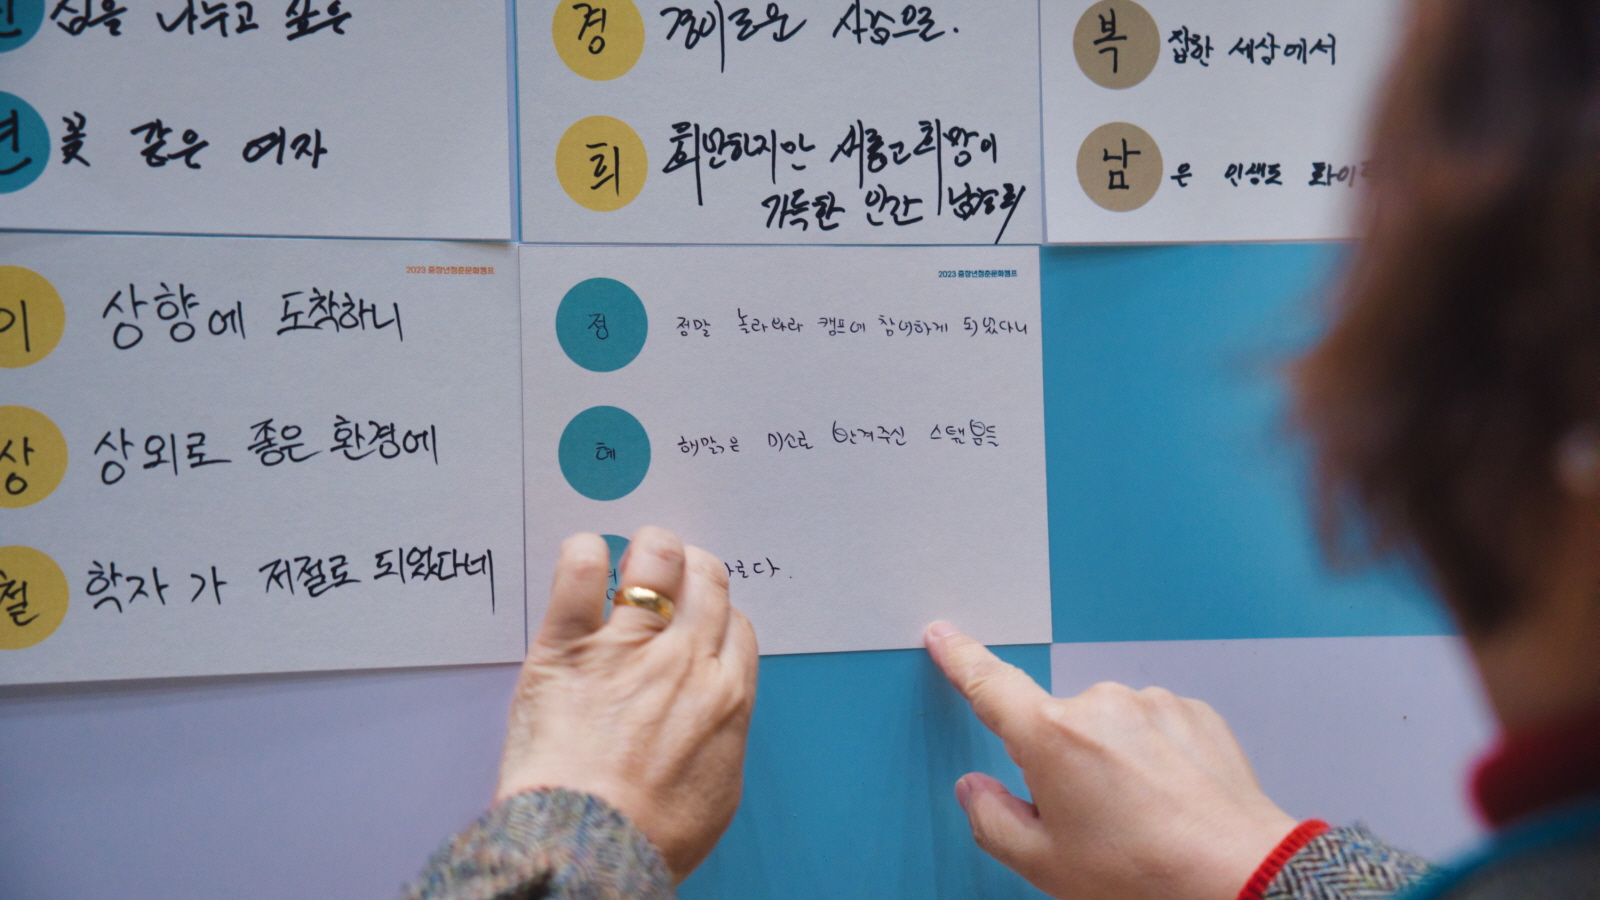 심을 나누고 싶은
연 꽃 같은 여자
경 경이로운 사람으로.
희 희만하지만 새롭고 희망이
가득한 인간 남경희
복 잡한 세상에서
남 은 인생도
2023 중장년청춘문화캠프
이 상향에 도착하니
상 상외로 좋은 환경에
철 학자가 저절로 되었다네
2023 중장년청춘문화캠프
정 정말 놀라와라 캠프에 참여하게 되었다니
혜 해맑은 미소로 반겨주신 스탭분들